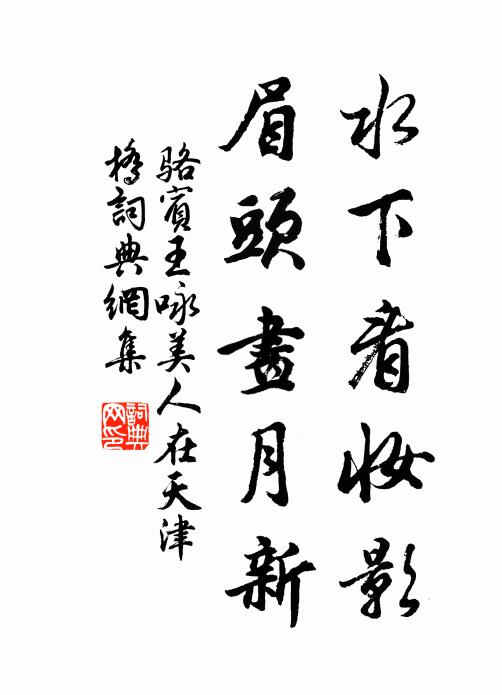 水下看妝影
眉頭畫月新
駱賓王咏美人在天津
橋詞典網集
詞典网印